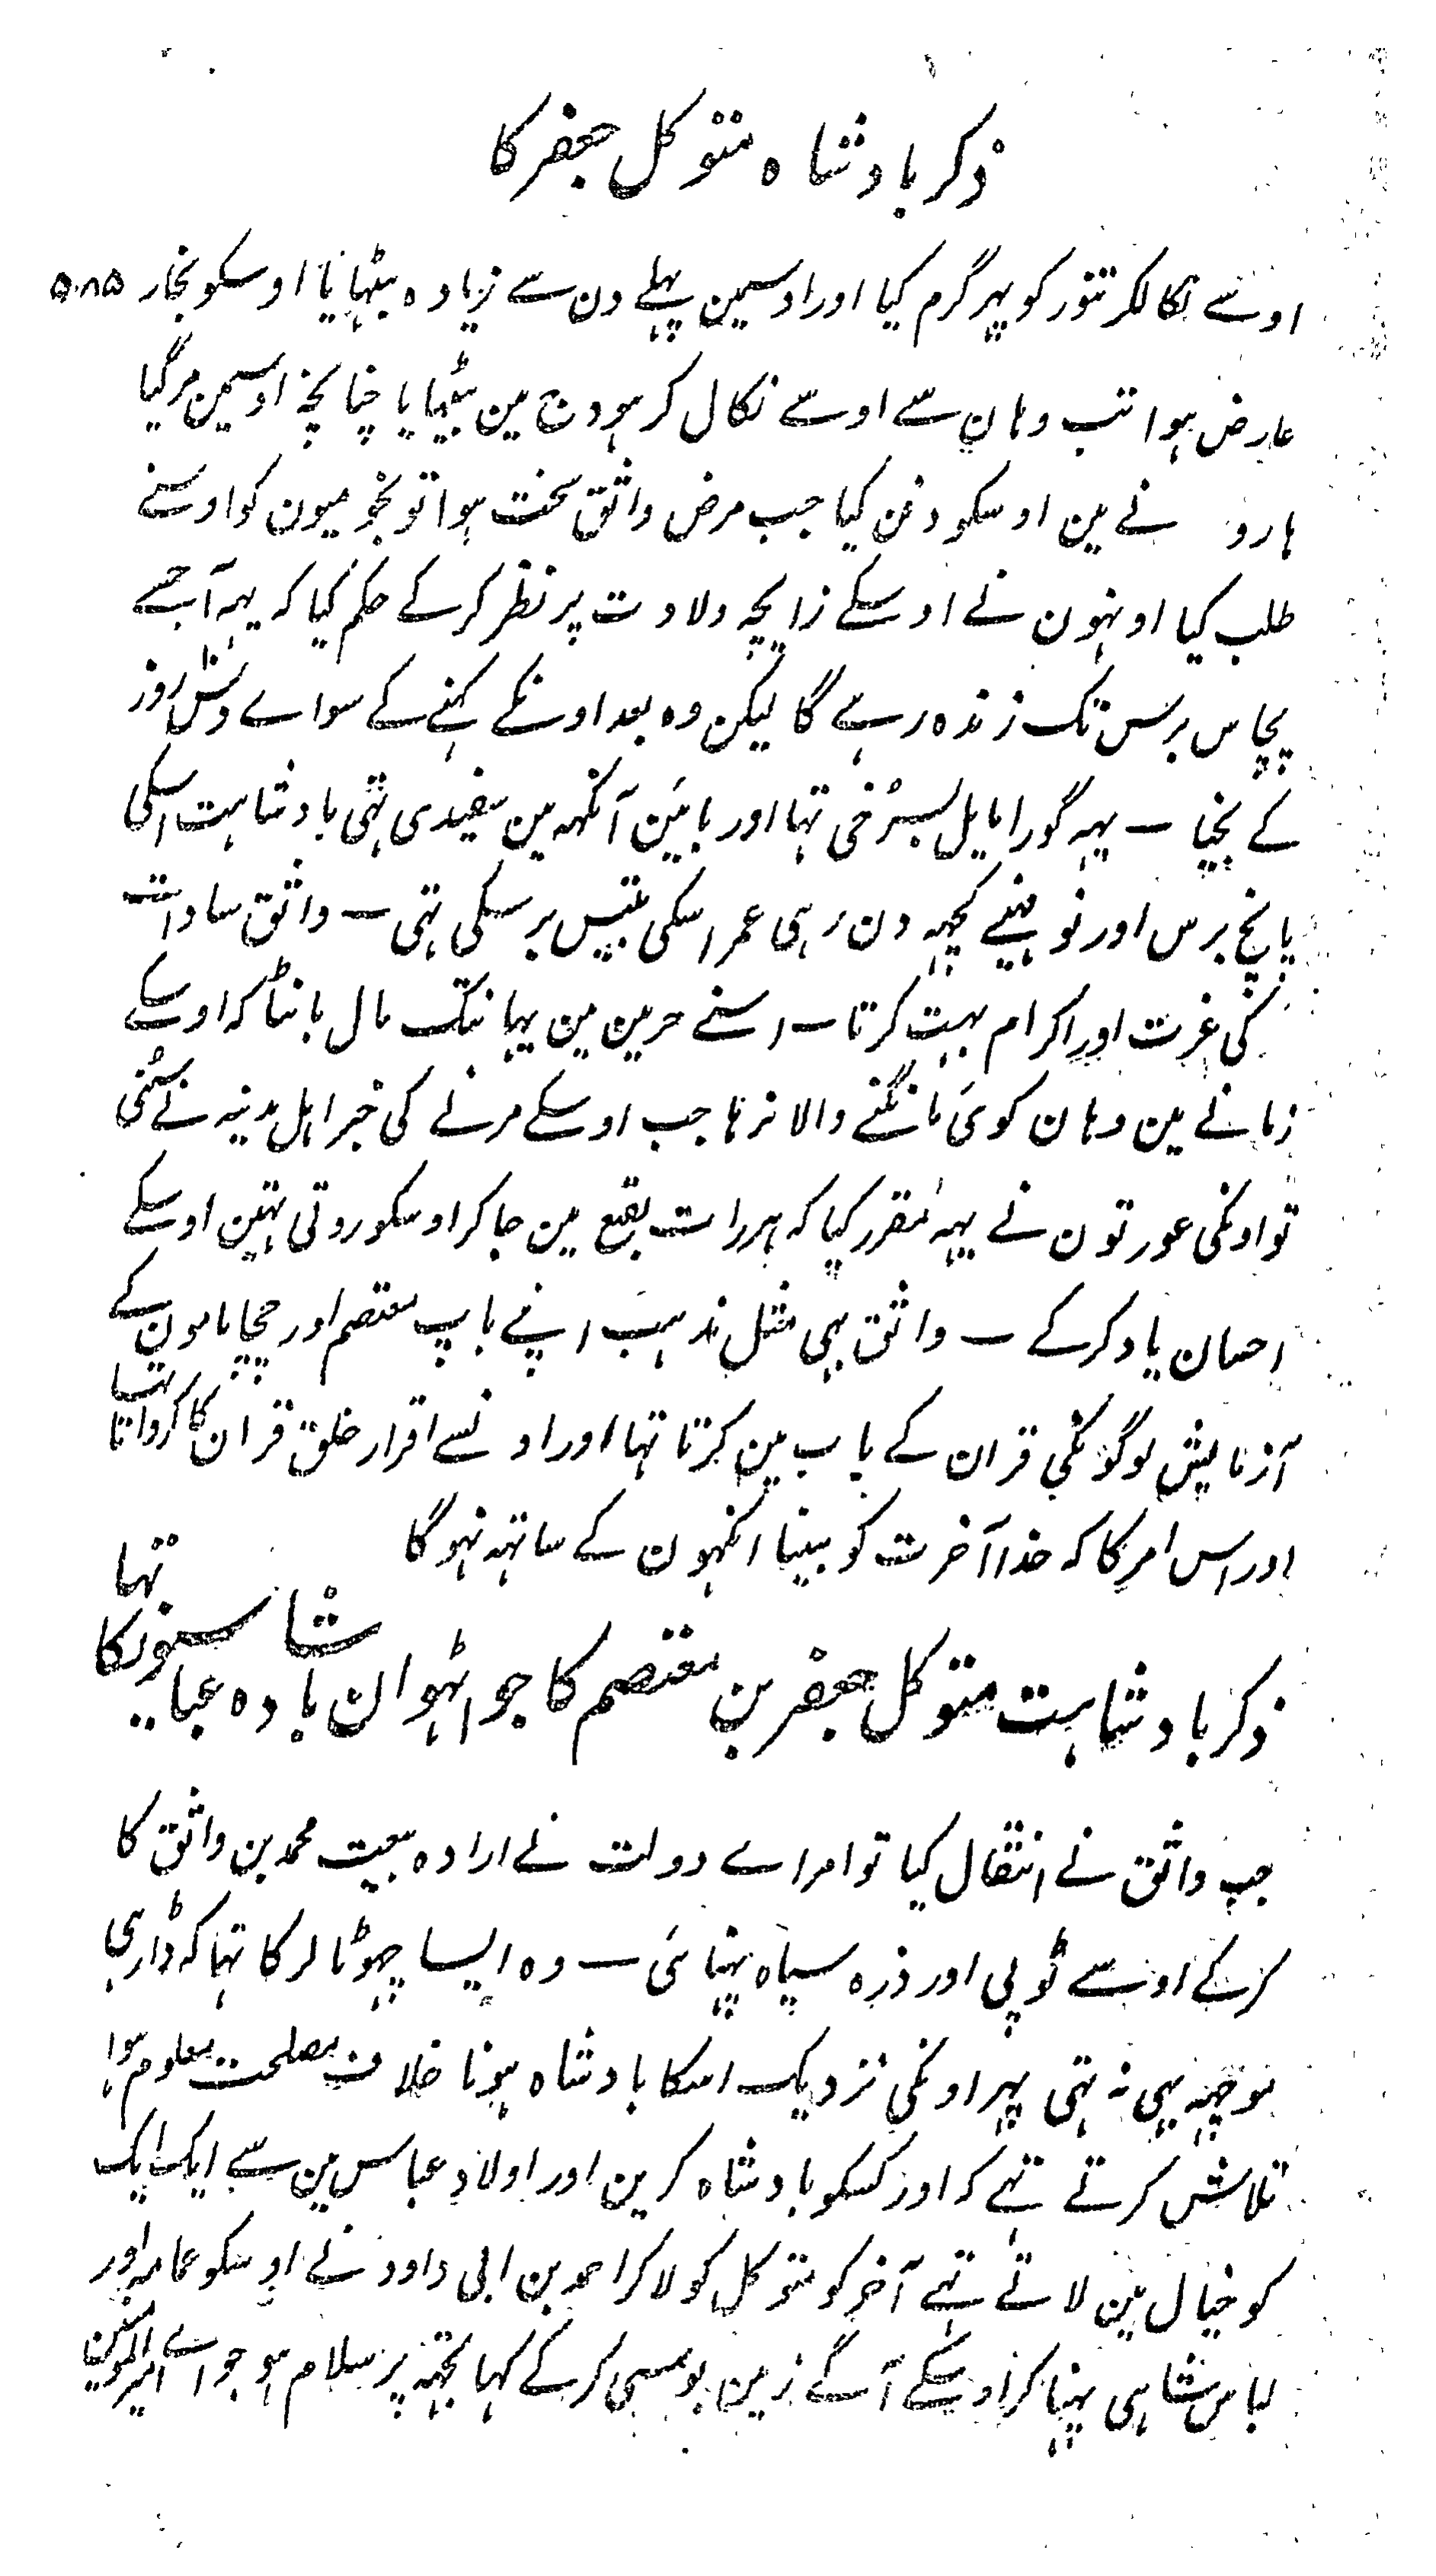 ذکر بادشاہ متوکل جعفر کا
اوسے نکالکر تنور کو پہر گرم کیا اور اوسمین پہلے دن سے زیادہ بیٹہایا اوسکو بخار ۵۰۸۵
عارض ہوا تب وہان سے اوسے نکال کر ہودج مین بٹیہایا چنانچہ اوسیمین مر گیا
ہارو نے مین اوسکو دفن کیا جب مرض واثق سخت ہوا تو نجومیون کو اوسنے
طلب کیا اونہون نے اوسکے زایچہ ولادت پر نظر کر کے حکم کیا کہ یہہ آجسے
پچاس برس تک زندہ رہے گا لیکن وہ بعد اونکے کہنے کے سواے دس ۱۰ روز
کے نجیا ــ یہہ گورا مایل بسرخی تہا اور بایئن آنکہہ مین سفیدی تہی بادشاہت اسکی
پانچ برس اور نو مہنیے کچہہ دن رہی عمر اسکی بتیس برسکی تہی ــ واثق سادات
کی عزت اور اکرام بہت کرتا ــ اسنے حرمین مین یہانتک مال بانٹا کہ اوسکے
زمانے مین وہان کوئ مانگنے والا نرہا جب اوسکے مرنے کی خبر اہل مدینہ نے سنی
تو اونکی عورتون نے یہہ مقرر کیا کہ ہر رات بقیع مین جا کر اوسکو روتی تہین اوسکے
احسان یاد کر کے ــ واثق بہی مثل مذہب اپنے باپ معتصم اور چچا مامون کے
آزمایش لوگونکی قران کے باب مین کرتا تہا اور اونسے اقرار خلق قران کا کرواتا تہا
اور اس امر کا کہ خدا آخرت کو بینا انکہون کے ساتہہ نہو گا
ذکر بادشاہت متوکل جعفر بن معتصم کا جو اٹہوان بادشاہ عباسیونکا تہا
جب واثق نے انتقال کیا تو امراے دولت نے ارادہ بیعت محمد بن واثق کا
کر کے اوسے ٹوپی اور ذرہ سیاہ پہنائ ــ وہ ایسا چہوٹا لرکا تہا کہ ڈارہی
موچہہ بہی نہ تہی پہر اونکی نزدیک اسکا بادشاہ ہونا خلاف مصلحت معلوم ہوا
تلاش کرتے تہے کہ اور کسکو بادشاہ کرین اور اولاد عباس مین سے ایک ایک
کو خیال مین لاتے تہے آخر کو متوکل کو لا کر احمد بن ابی داود نے اوسکو عمامہ اور
لباس شاہی پہنا کر اوسکے آگے زمین بوسی کر کے کہا تجہہ پر سلام ہو جو اے امیر المومنین